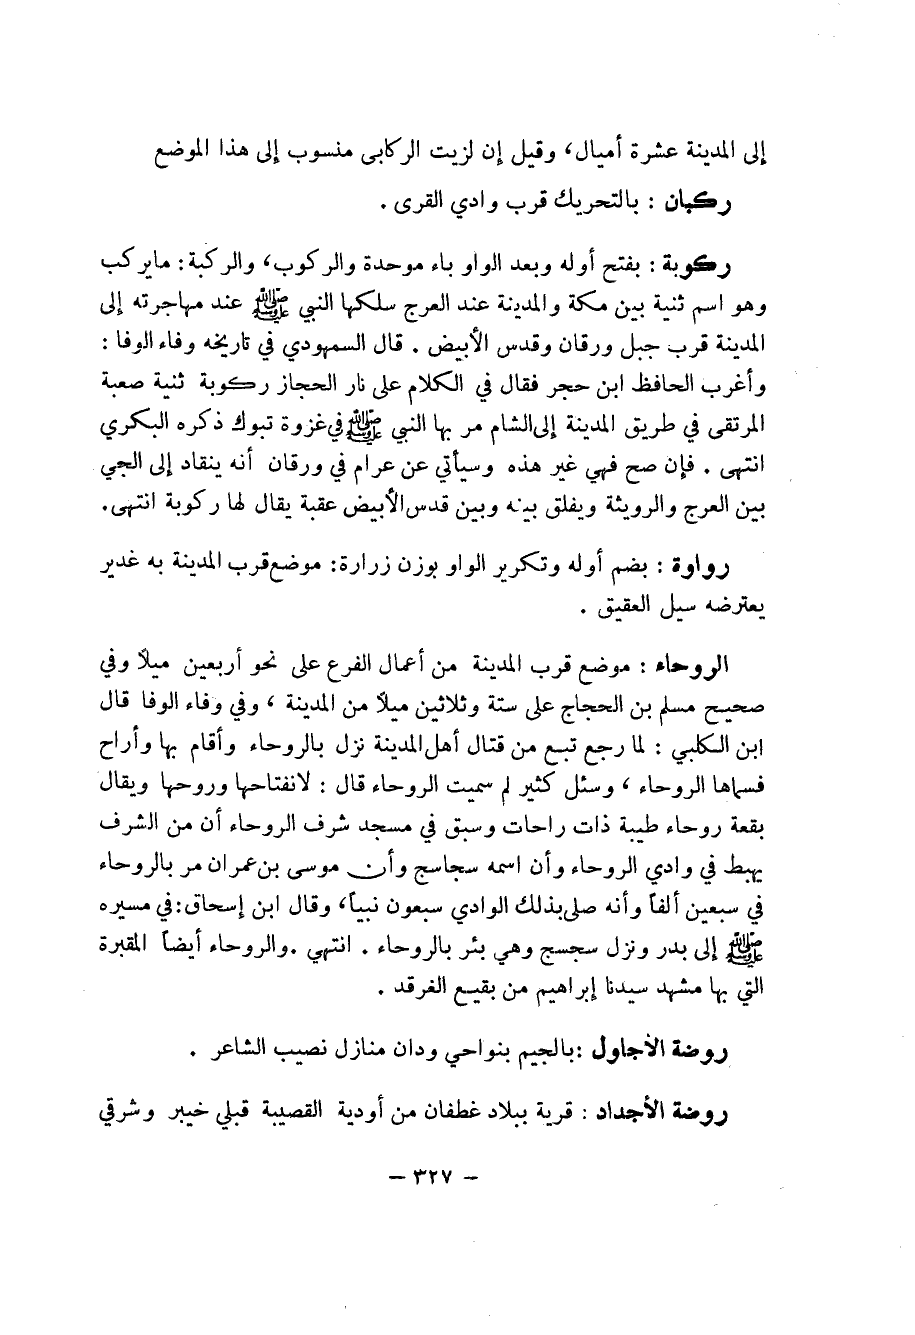 إلى المدينة عشرة أميال، وقيل إن لزيت الركابى منسوب إلى هذا الموضع
ركبان : بالتحريك قرب وادي القرى .
ركوبة : بفتح أوله وبعد الواو باء موحدة والركوب، والركبة: مايركب
وهو اسم ثنية بين مكة والمدينة عند العرج سلكها النبي ﷺ عند مهاجرته إلى
المدينة قرب جبل ورقان وقدس الأبيض . قال السمهودي في تاريخه وفاء الوفا :
وأغرب الحافظ ابن حجر فقال في الكلام على نار الحجاز ركوبة ثنية صعبة
المرتقى في طريق المدينة إلى الشام مر بها النبي ﷺ في غزوة تبوك ذكره البكري
انتهى . فإن صح فهي غير هذه وسيأتي عن عرام في ورقان أنه ينقاد إلى الجي
بين العرج والرويثة ويفلق بينه وبين قدس الأبيض عقبة يقال لها ركوبة انتهى.
رواوة : بضم أوله وتكرير الواو بوزن زرارة: موضع قرب المدينة به غدير
يعترضه سيل العقيق .
الروحاء : موضع قرب المدينة من أعمال الفرع على نحو أربعين ميلاً وفي
صحيح مسلم بن الحجاج على ستة وثلاثين ميلاً من المدينة ، وفي وفاء الوفا قال
ابن الكلبي : لما رجع تبع من قتال أهل المدينة نزل بالروحاء وأقام بها وأراح
فسماها الروحاء ، وسئل كثير لم سميت الروحاء قال : لانفتاحها وروحها ويقال
بقعة روحاء طيبة ذات راحات وسبق في مسجد شرف الروحاء أن من الشرف
يهبط في وادي الروحاء وأن اسمه سجاسج وأن موسى بن عمران مر بالروحاء
في سبعين ألفاً وأنه صلى بذلك الوادي سبعون نبياً، وقال ابن إسحاق: في مسيره
ﷺ إلى بدر ونزل سجسج وهي بئر بالروحاء . انتهي .والروحاء أيضاً المقبرة
التي بها مشهد سيدنا إبراهيم من بقيع الغرقد .
روضة الأجاول :بالجيم بنواحي ودان منازل نصيب الشاعر .
روضة الأجداد : قرية ببلاد غطفان من أودية القصيبة قبلي خيبر وشرقي
– ٣٢٧ –